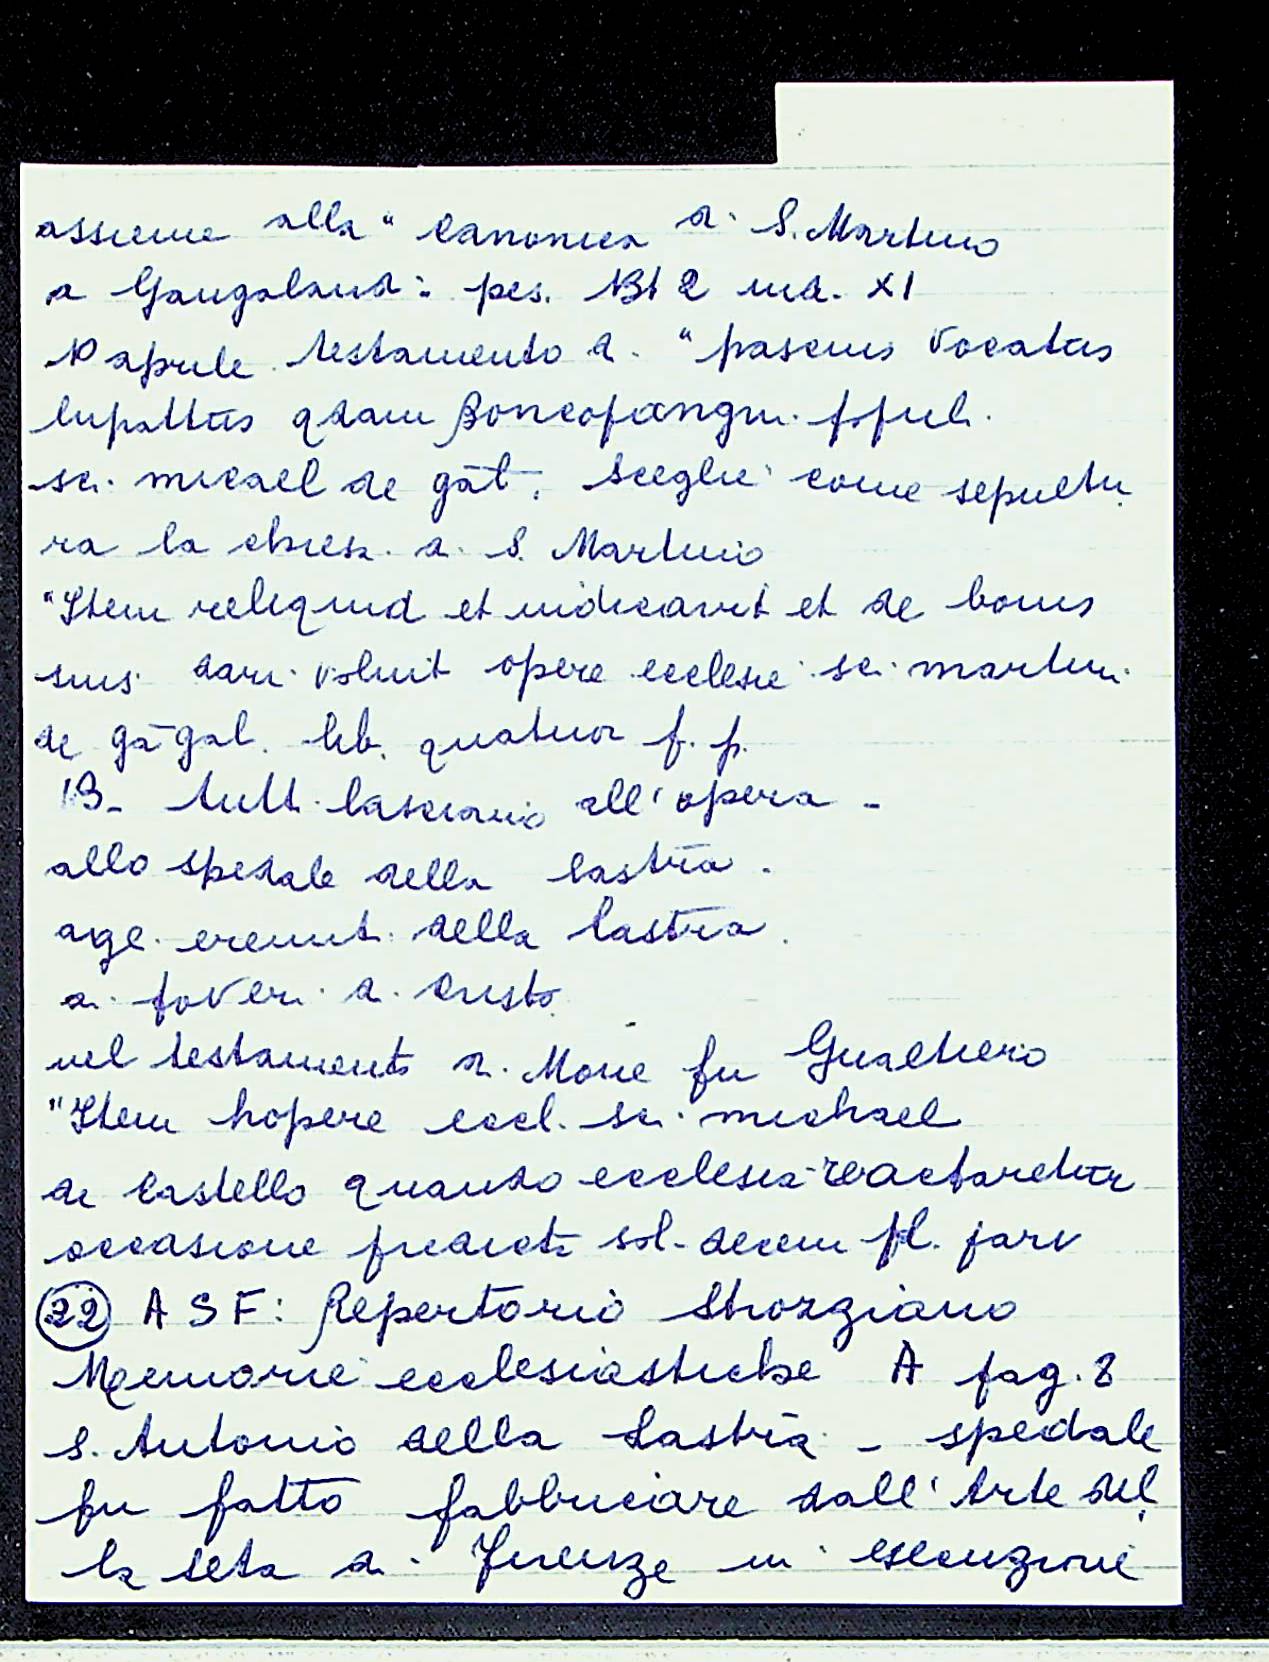 assieme alla "canonica di S. Martino
a Gangalandi: pes. 1312 ind. XI
10 aprile testamento di "pascius vocatus
lupattus qdam Boncopangni. p. pul.
sci. micael de gāt. sceglie come sepultu
ra la chiesa di S. Martino
"Item reliquid et iudicavit et de bonis
suis dari voluit opere ecclesie sci martini
de gāgal. lib. quatuor f. p.
13- tutti lasciano all'opera -
allo spedale della lastra.
age. eremit. della lastra.
ai poveri di Cristo.
nel testamento di Mone fu Gualtiero
"Item hopere eccl. sci. michael
de Castello quando ecclesia reactaretur
occasione predicta sol. decem fl. parv
(22) ASF: Repertorio Strozziano
Memorie ecclesiastiche A pag. 8
S. Antonio della Lastra - spedale
fu fatto fabbricare dall'Arte del
la seta di Firenze in esecuzione